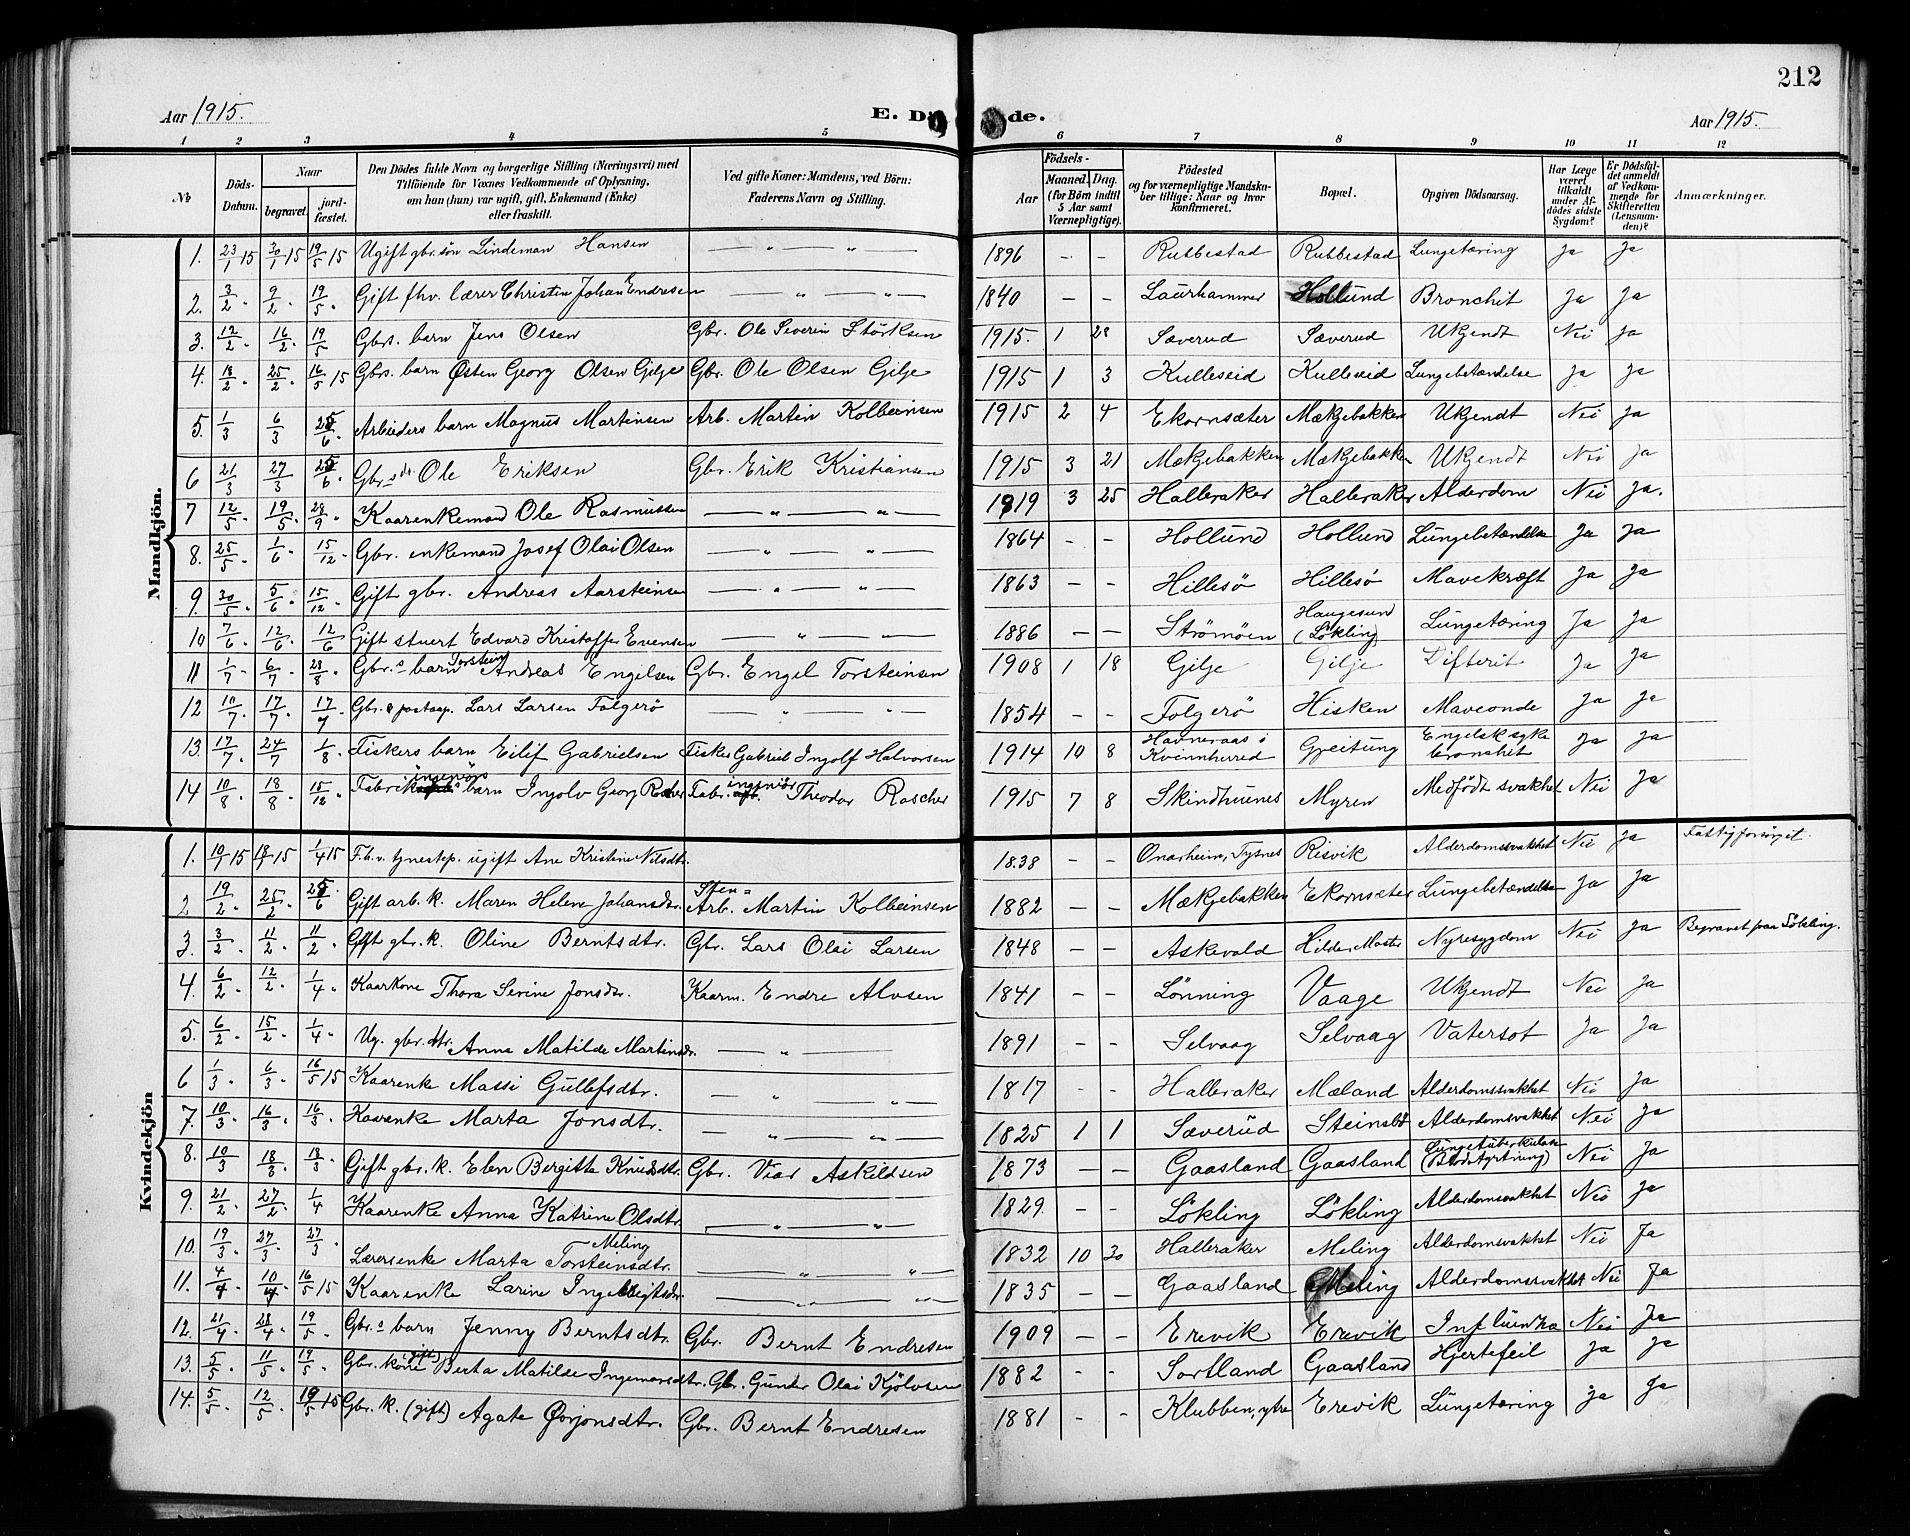 212
Aar 1915.
E. D de.
Aar 1915.
1 2 3 4 5 6 7 8 9 10 11 12
No
Döds-Datum.
Naar
begravet.
jord-fæstet.
Den Dödes fulde Navn og borgerlige Stilling (Næringsvei) med
Tilföiende for Voxnes Vedkommende af Oplysning,
om han (hun) var ugift, gift, Enkemand (Enke)
eller fraskilt.
Ved gifte Koner: Mandens, ved Börn:
Faderens Navn og Stilling.
Födsels-
Aar
Maaned. Dag.
(for Börn indtil
5 Aar samt
Værnepligtige).
Födested
og for værnepligtige Mandska-
ber tillige: Naar og hvor
konfirmeret.
Bopæl.
Opgiven Dödsaarsag.
Har Læge
været
tilkaldt
under Af-
dödes sidste
Sygdom?
Er Dödsfal-
det anmeldt
af Vedkom-
mende for
Skifteretten
(Lensman-
den)?
Anmærkninger.
Mandkjön.
1. 23/1 15 30/1 15 19/5 15 Ugift gbr. søn Lindeman Hansen — " — " — 1896 - - Rubbestad Rubbestad Lungetæring Ja Ja
2. 3/2 " 9/2 " 19/5 " Gift fhv. lærer Christen Johan Endresen — " — " — 1840 - - Laurhammer Hollund Bronchit Ja Ja
3. 12/2 " 16/2 " 19/5 Gbrs. barn Jens Olsen Gbr. Ole Severin Störksen 1915. 1 28 Sæverud Sæverud Ukjendt Nei Ja
4. 18/2 " 25/2 " 16/5 15 Gbrs. barn Østen Georg Olsen Gilje Gbr. Ole Olsen Gilje 1915 1 3 Kulleseid Kulleseid Lungebetændelse Ja Ja
5. 1/3 6/3 25/6 " Arbeiders barn Magnus Martinsen Arb. Martin Kolbeinsen 1915 2 4 Ekornsæter Mækjebakken Ukjendt Nei Ja
6 21/3 27/3 25/6 " Gbr.s Ole Eriksen Gbr. Erik Kristiansen 1915 3 21 Mækjebakken Mækjebakken Ukjendt Nei Ja
7 12/5 " 19/5 " 28/9 " Kaarenkemand Ole Rasmussen — " — " — 1819 3 25 Halleraker Halleraker Alderdom Nei Ja.
8. 25/5 " 1/6 " 15/12 " Gbr. enkemand Josef Olai Olsen — " — " — 1864 - - Hollund Hollund Lungebetændelse Ja Ja
9. 30/5 " 5/6 " 15/12 " Gift gbr. Andreas Aarsteinsen — " — " — 1863 - - Hillesö Hillesö Mavekræft Ja Ja
10 7/6 " 12/6 " 12/6 Gift stuert Edvard Kristoffer Evensen — " — " — 1886 - - Strömöen Haugesund (Lökling) Lungetæring Ja Ja
11 1/7 " 6/7 " 28/8 " Gbr.s barn Torstein Andreas Engelsen Gbr. Engel Torsteinsen 1908 1 18 Gilje Gilje Difterit Ja Ja
12 10/7 " 17/7 " 17/7 " Gbr. & postaap. Lars Larsen Folgerö — " — " — 1854 - - Folgerö Hisken Maveonde Ja Ja
13. 17/7 " 24/7 1/8 " Fiskers barn Eilif Gabrielsen Fisker Gabriel Ingolf Halvorsen 1914 10 8 Havneraas i Kvinnherred Greitung Engelsk syke bronchit Ja Ja
14 10/8 " 18/8 " 15/12 " Fabrik ingeniörs barn Ingolv Georg Rascher Fabr. ingeniör Theodor Rascher 1915 7 8 Skindhuenes Myren Medfödt svakhet Nei Ja
Kvindekjön
1. 10/1 15 18/1 15 1/4 15 F.b.v. tjnestep. ugift Ane Kristine Nilsdtr. 1838 - - Onarheim, Tysnes Risvik Alderdomssvakhet Nei Ja Fattigforsörget.
2 19/2 " 25/2 " 25/6 " Gift arb. k. Maren Helene Johansdtr. Sten= Arb. Martin Kolbeinsen 1882 - - Mækjebakken Ekornsæter Lungebetændelse Ja Ja
3. 3/2 " 11/2 " 11/2 " Gift gbr. k. Oline Berntsdtr. Gbr. Lars Olai Larsen 1848 - - Askevold Hilder, Moster Nyresygdom Nei Ja Begravet paa Lökling.
4. 6/2 " 12/2 " 1/4 " Kaarkone Thora Serine Jonsdtr. Kaarm. Endre Alvsen 1841 - - Lönning Vaage Ukjendt Nei Ja
5. 6/2 " 15/2 " 1/4 " Ug. gbr. dtr. Anna Matilde Martinsdtr. — " — 1891 - - Selvaag Selvaag Vatersot Ja Ja
6 1/3 " 6/3 " 16/5 15 Kaarenke Massi Gullefsdtr. — " — " — 1817 - - Halleraker Mæland Alderdomssvakhet Nei Ja
7. 10/3 " 16/3 " 16/3 " Kaarenke Marta Jonsdtr. — " — " — 1825 1 1 Sæverud Steinsbö Alderdomsvakhet Nei Ja
8. 10/3 18/3 " 18/3 " Gift gbr. k. Elen Bergitta Knudsdtr. Gbr. Viar Askildsen 1873 - Gaasland Gaasland Lungetuberkulose (Blodstyrtning) Nei Ja
9. 21/2 " 27/2 " 1/4 Kaarenke Anna Katrine Olsdtr. — " — " — 1829 - - Lökling Lökling Alderdomsvakhet Nei Ja
10. 19/3 " 27/3 " 27/3 " Lærersenke Marta Torsteinsdtr. Meling — " — " — 1832 10 30 Halleraker Meling Alderdomsvakhet Nei Ja
11. 4/4 " 10/4 " 16/5 15 Kaarenke Larine Ingebrigtsdtr. — " — " — 1835 - - Gaasland Meling Alderdomssvakhet Nei Ja
12. 21/4 " 28/4 " 19/5 " Gbr.s barn Jenny Berntsdtr. Gbr. Bernt Endresen 1909 - - Erevik Erevik Influenza Nei Ja
13. 5/5 " 11/5 " 19/5 " Gbr. kone (gift) Berta Matilde Ingemarsdtr. Gbr. Gunder Olai Kjölvsen 1882 - - Sortland Gaasland Hjertefeil Ja Ja
14. 5/5 " 12/5 " 19/5 15 Gbr. k. (gift) Agate Ørjonsdtr. Gbr. Bernt Endresen 1881 - - Klubben, ytre Erevik Lungetæring Ja Ja